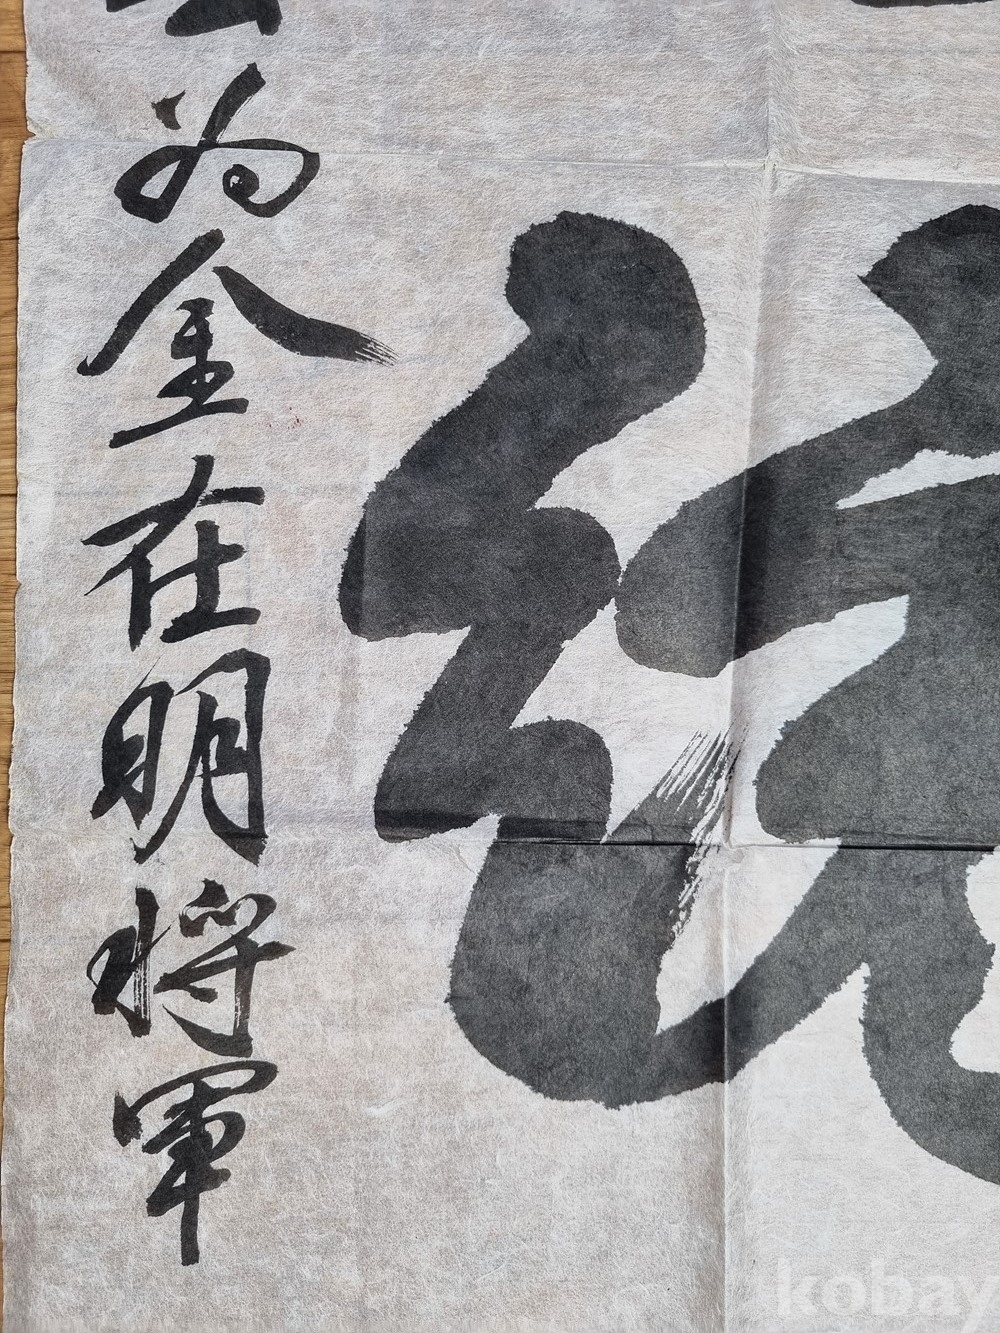 統
為金在明將軍
kobay